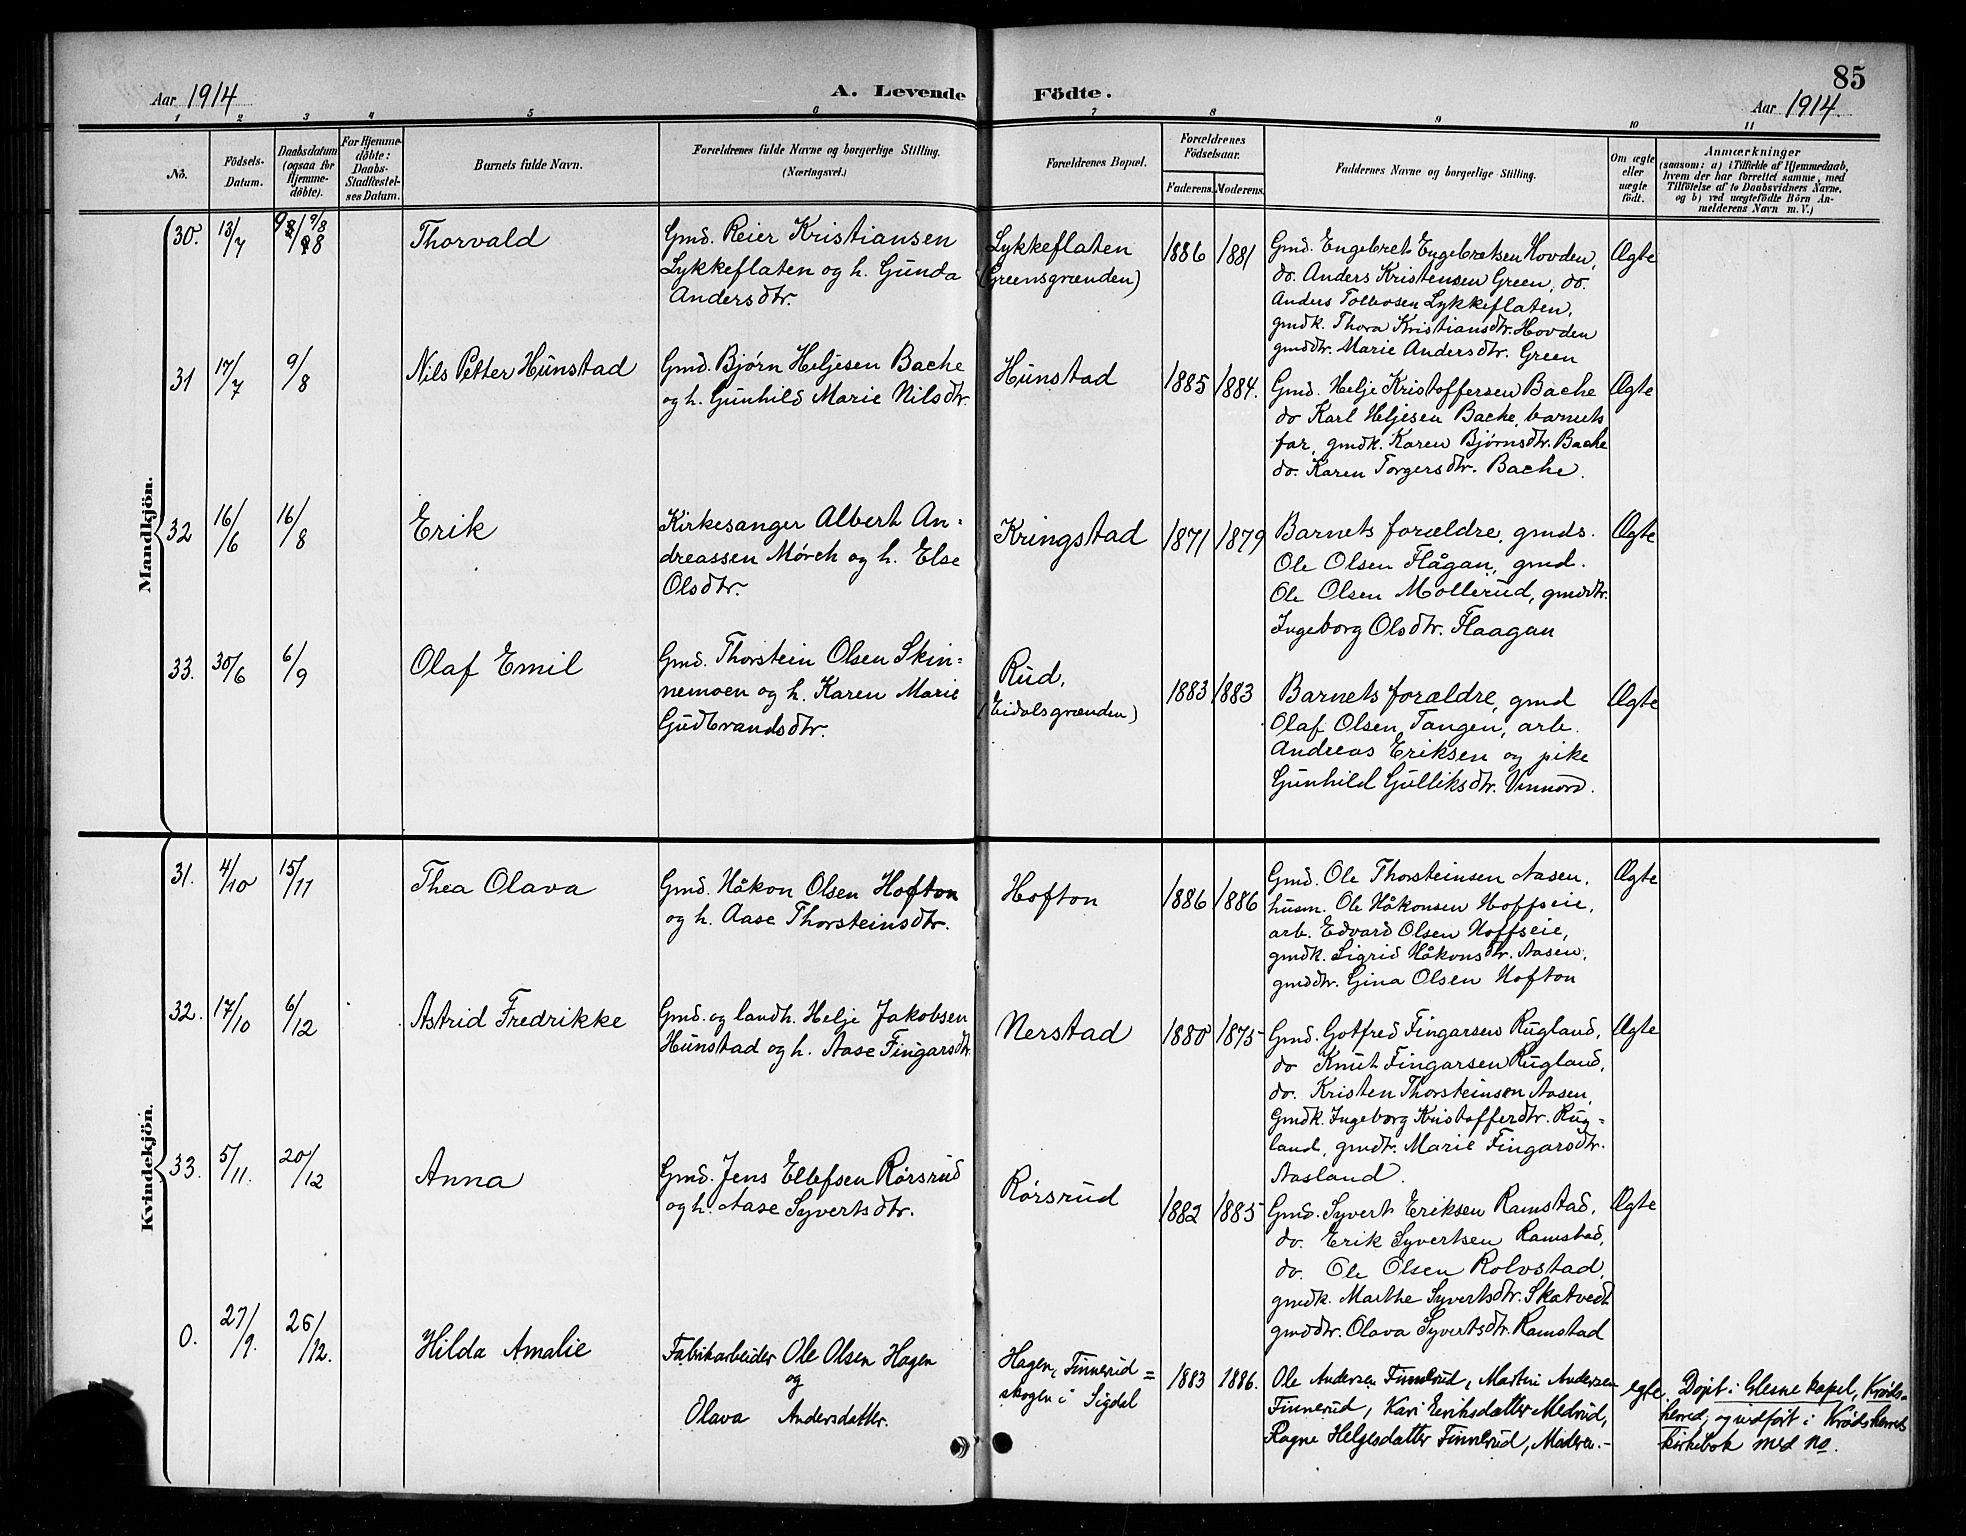 85
Aar 1914 A. Levende Födte. Aar 1914
1 2 3 4 5 6 7 8 9 10 11
No. Födsels-Datum. Daabsdatum (ogsaa for Hjemmedöbte). For Hjemmedöbte: Daabs-Stadfestelses Datum. Barnets fulde Navn. Forældrenes fulde Navne og borgerlige Stilling. (Næringsvei.) Forældrenes Bopæl. Forældrenes Födselsaar. Faderens. Moderens. Faddernes Navne og borgerlige Stilling. Om ægte eller uægte födt. Anmærkninger
(saasom: a) i Tilfælde af Hjemmedaab,
hvem der har forrettet samme, med
Tilföielse af to Daabsvidners Navne,
og b) ved uægtefödte Börn An-
melderens Navn m. V.)
Mandkjön.
30. 13/7 9/8 Thorvald
Gmd. Reier Kristiansen
Lykkeflaten og h. Gunda
Andersdtr.
Lykkeflaten
(Greensgrænden)
1886 1881
Gmd. Engebret Engebretsen Hovden,
do. Anders Kristensen Green, do.
Anders Tollevsen Lykkeflaten,
gmdk. Thora Kristiansdtr. Hovden
gmddtr. Marie Andersdtr. Green
Ægte
31 17/7 9/8 Nils Petter Hunstad
Gmd. Bjørn Heljesen Bache
og h. Gunhild Marie Nilsdtr.
Hunstad
1885 1884.
Gmd. Helje Kristoffersen Bache
do Karl Heljesen Bache, barnets
far, gmdk. Karen Bjørnsdtr. Bache
do. Karen Torgersdtr. Bache.
Ægte
32 16/6 16/8 Erik
Kirkesanger Albert An-
dreassen Mørch og h. Else
Olsdtr.
Kringstad
1871 1879
Barnets forældre, gmds.
Ole Olsen Flågan, gmd.
Ole Olsen Mollerud, gmddtr.
Ingeborg Olsdtr. Flaagan
Ægte
33. 30/6 6/9 Olaf Emil
Gmd. Thorstein Olsen Skin-
nemoen og h. Karen Marie
Gudbrandsdtr.
Rud,
(Eidalsgrænden)
1883 1883
Barnets forældre, gmd
Olaf Olsen Tangen, arb.
Andreas Eriksen og pike
Gunhild Gulliksdtr.
Ægte
Kvindekjön.
31. 4/10 15/11 Thea Olava
Gmd. Håkon Olsen Hofton
og h. Aase Thorsteinsdtr.
Hofton
1886 1886
Gmd. Ole Thorsteinsen Aasen,
husm. Ole Håkonsen Hoffseie,
arb. Edvard Olsen Hoffseie,
gmdk. Sigrid Håkonsdtr. Aasen,
gmddtr. Gina Olsen Hofton
Ægte
32. 17/10 6/12 Astrid Fredrikke
Gmd. og landh. Helje Jakobsen
Hunstad og h. Aase Fingarsdtr.
Nerstad
1880 1875
Gmd. Gotfred Fingarsen Rugland,
do Knut Fingarsen Rugland,
do. Kristen Thorsteinsen Aasen,
Gmdk. Ingeborg Kristofferdtr. Rug-
land, gmdtr. Marie Fingarsdtr.
Aasland.
Ægte
33. 5/11. 20/12 Anna
Gmd. Jens Ellefsen Rørsrud
og h. Aase Syvertsdtr.
Rørsrud
1882 1885
Gmd. Syvert Eriksen Ramstad,
do. Erik Syvertsen Ramstad,
do. Ole Olsen Rolvstad,
gmdk. Marthe Syvertsdtr. Skatvedt
gmddtr. Olava Syvertsdtr. Ramstad
Ægte
0. 27/9. 26/12. Hilda Amalie
Fabrikarbeider Ole Olsen Hagen
og
Olava Andersdatter.
Hagen, Finnerud=
skogen i Sigdal
1883 1886.
Ole Andersen Finnerud, Martin Andersen
Finnerud, Kari Eriksdatter Medrud,
Ragne Helgesdatter Finnerud, Moderen.-
egte
Døpt i Glesne kapel, Krøds-
herred, og indført i Krødsherreds
kirkebok med no.